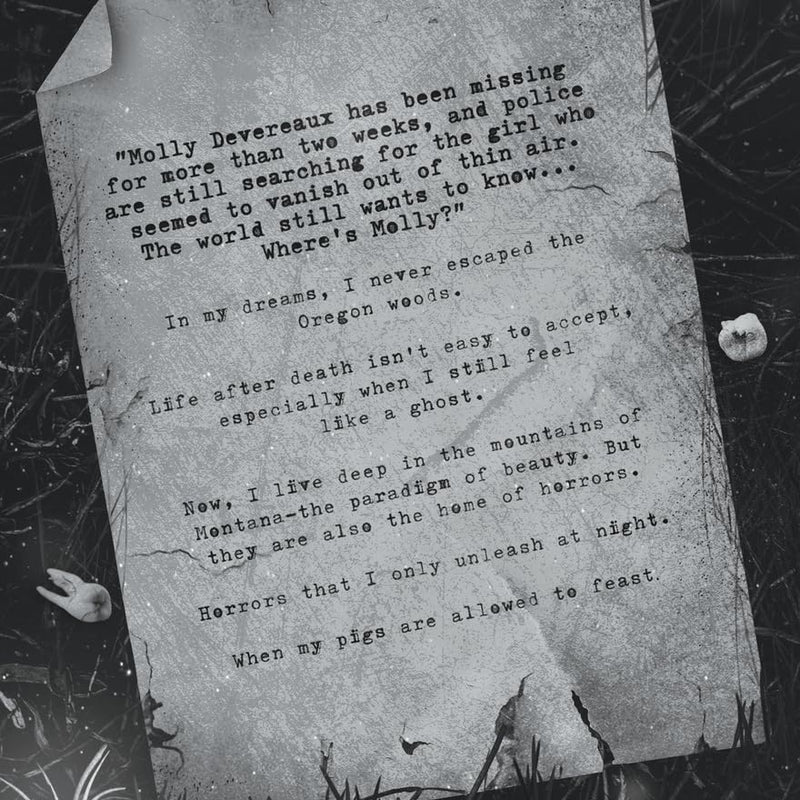 "Molly Devereaux has been missing
for more than two weeks, and police
are still searching for the girl who
seemed to vanish out of thin air.
The world still wants to know...
Where's Molly?"
In my dreams, I never escaped the
Oregon woods.
Life after death isn't easy to accept,
especially when I still feel
like a ghost.
Now, I live deep in the mountains of
Montana-the paradigm of beauty. But
they are also the home of horrors.
Horrors that I only unleash at night.
When my pigs are allowed to feast.